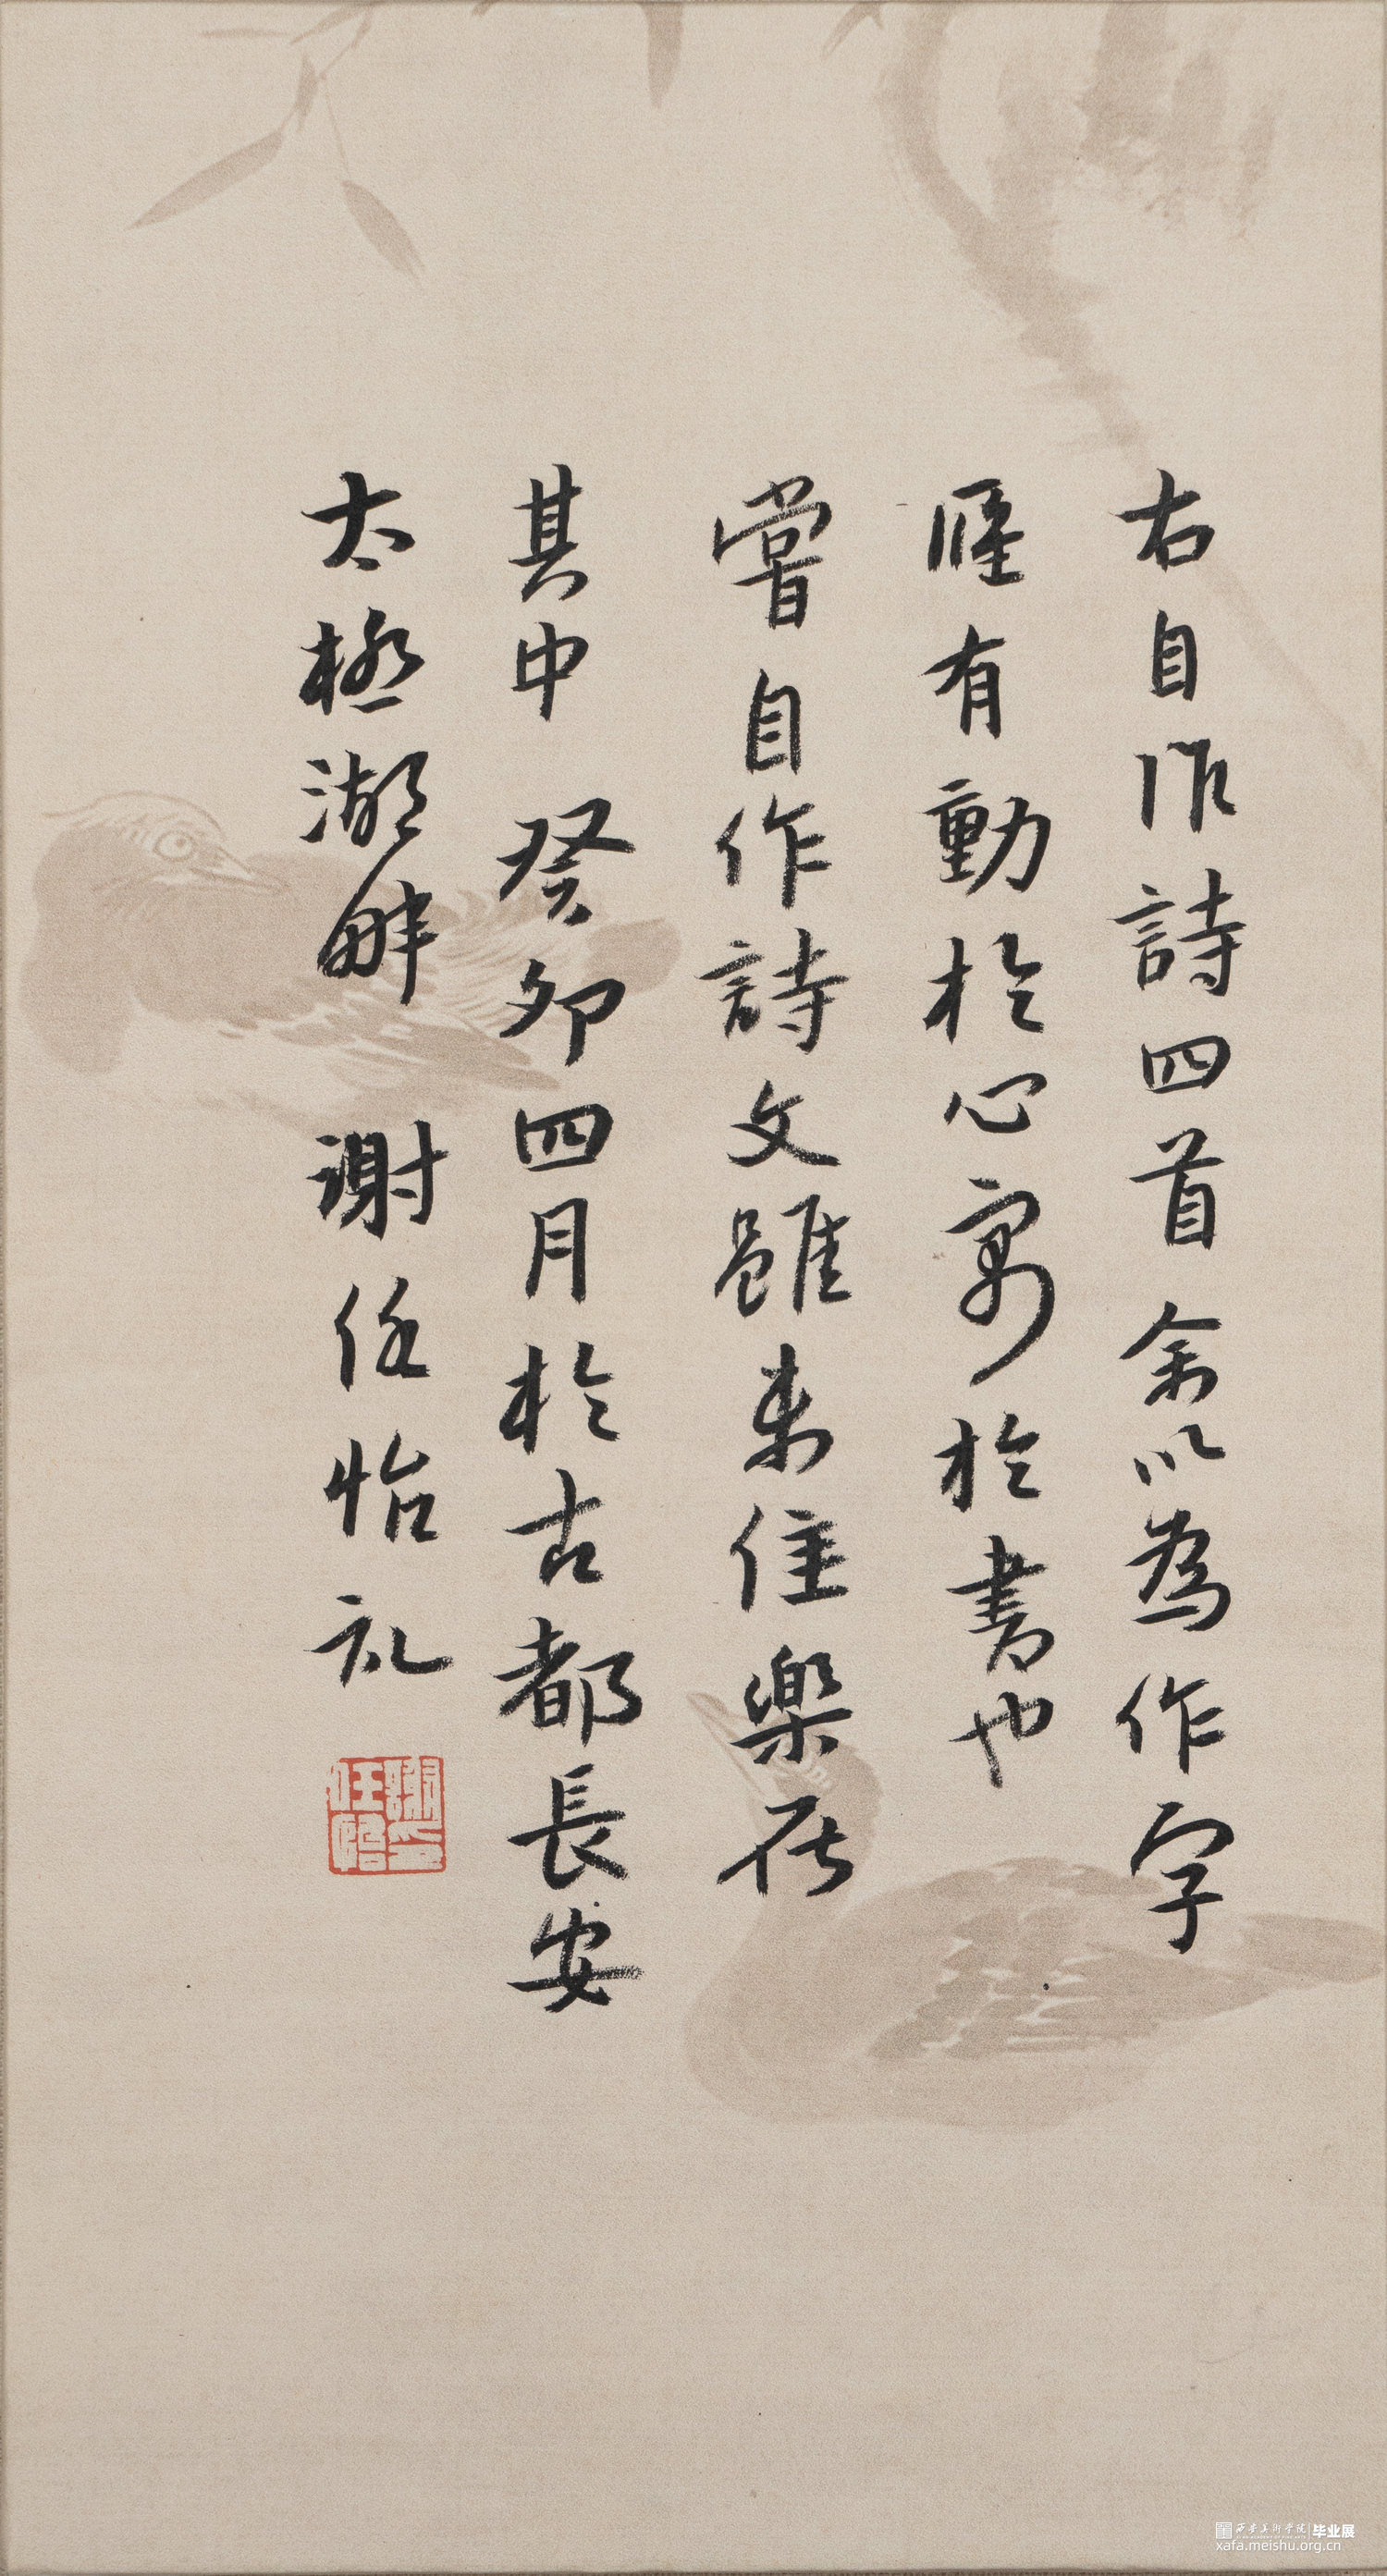 右自作詩四首余以為作字
惟有動於心寓於書也
嘗自作詩文雖未佳樂在
其中 癸卯四月於古都長安
太極湖畔 謝任怡礼
謝印任怡
西安美術学院 毕业展
xafa.meishu.org.cn